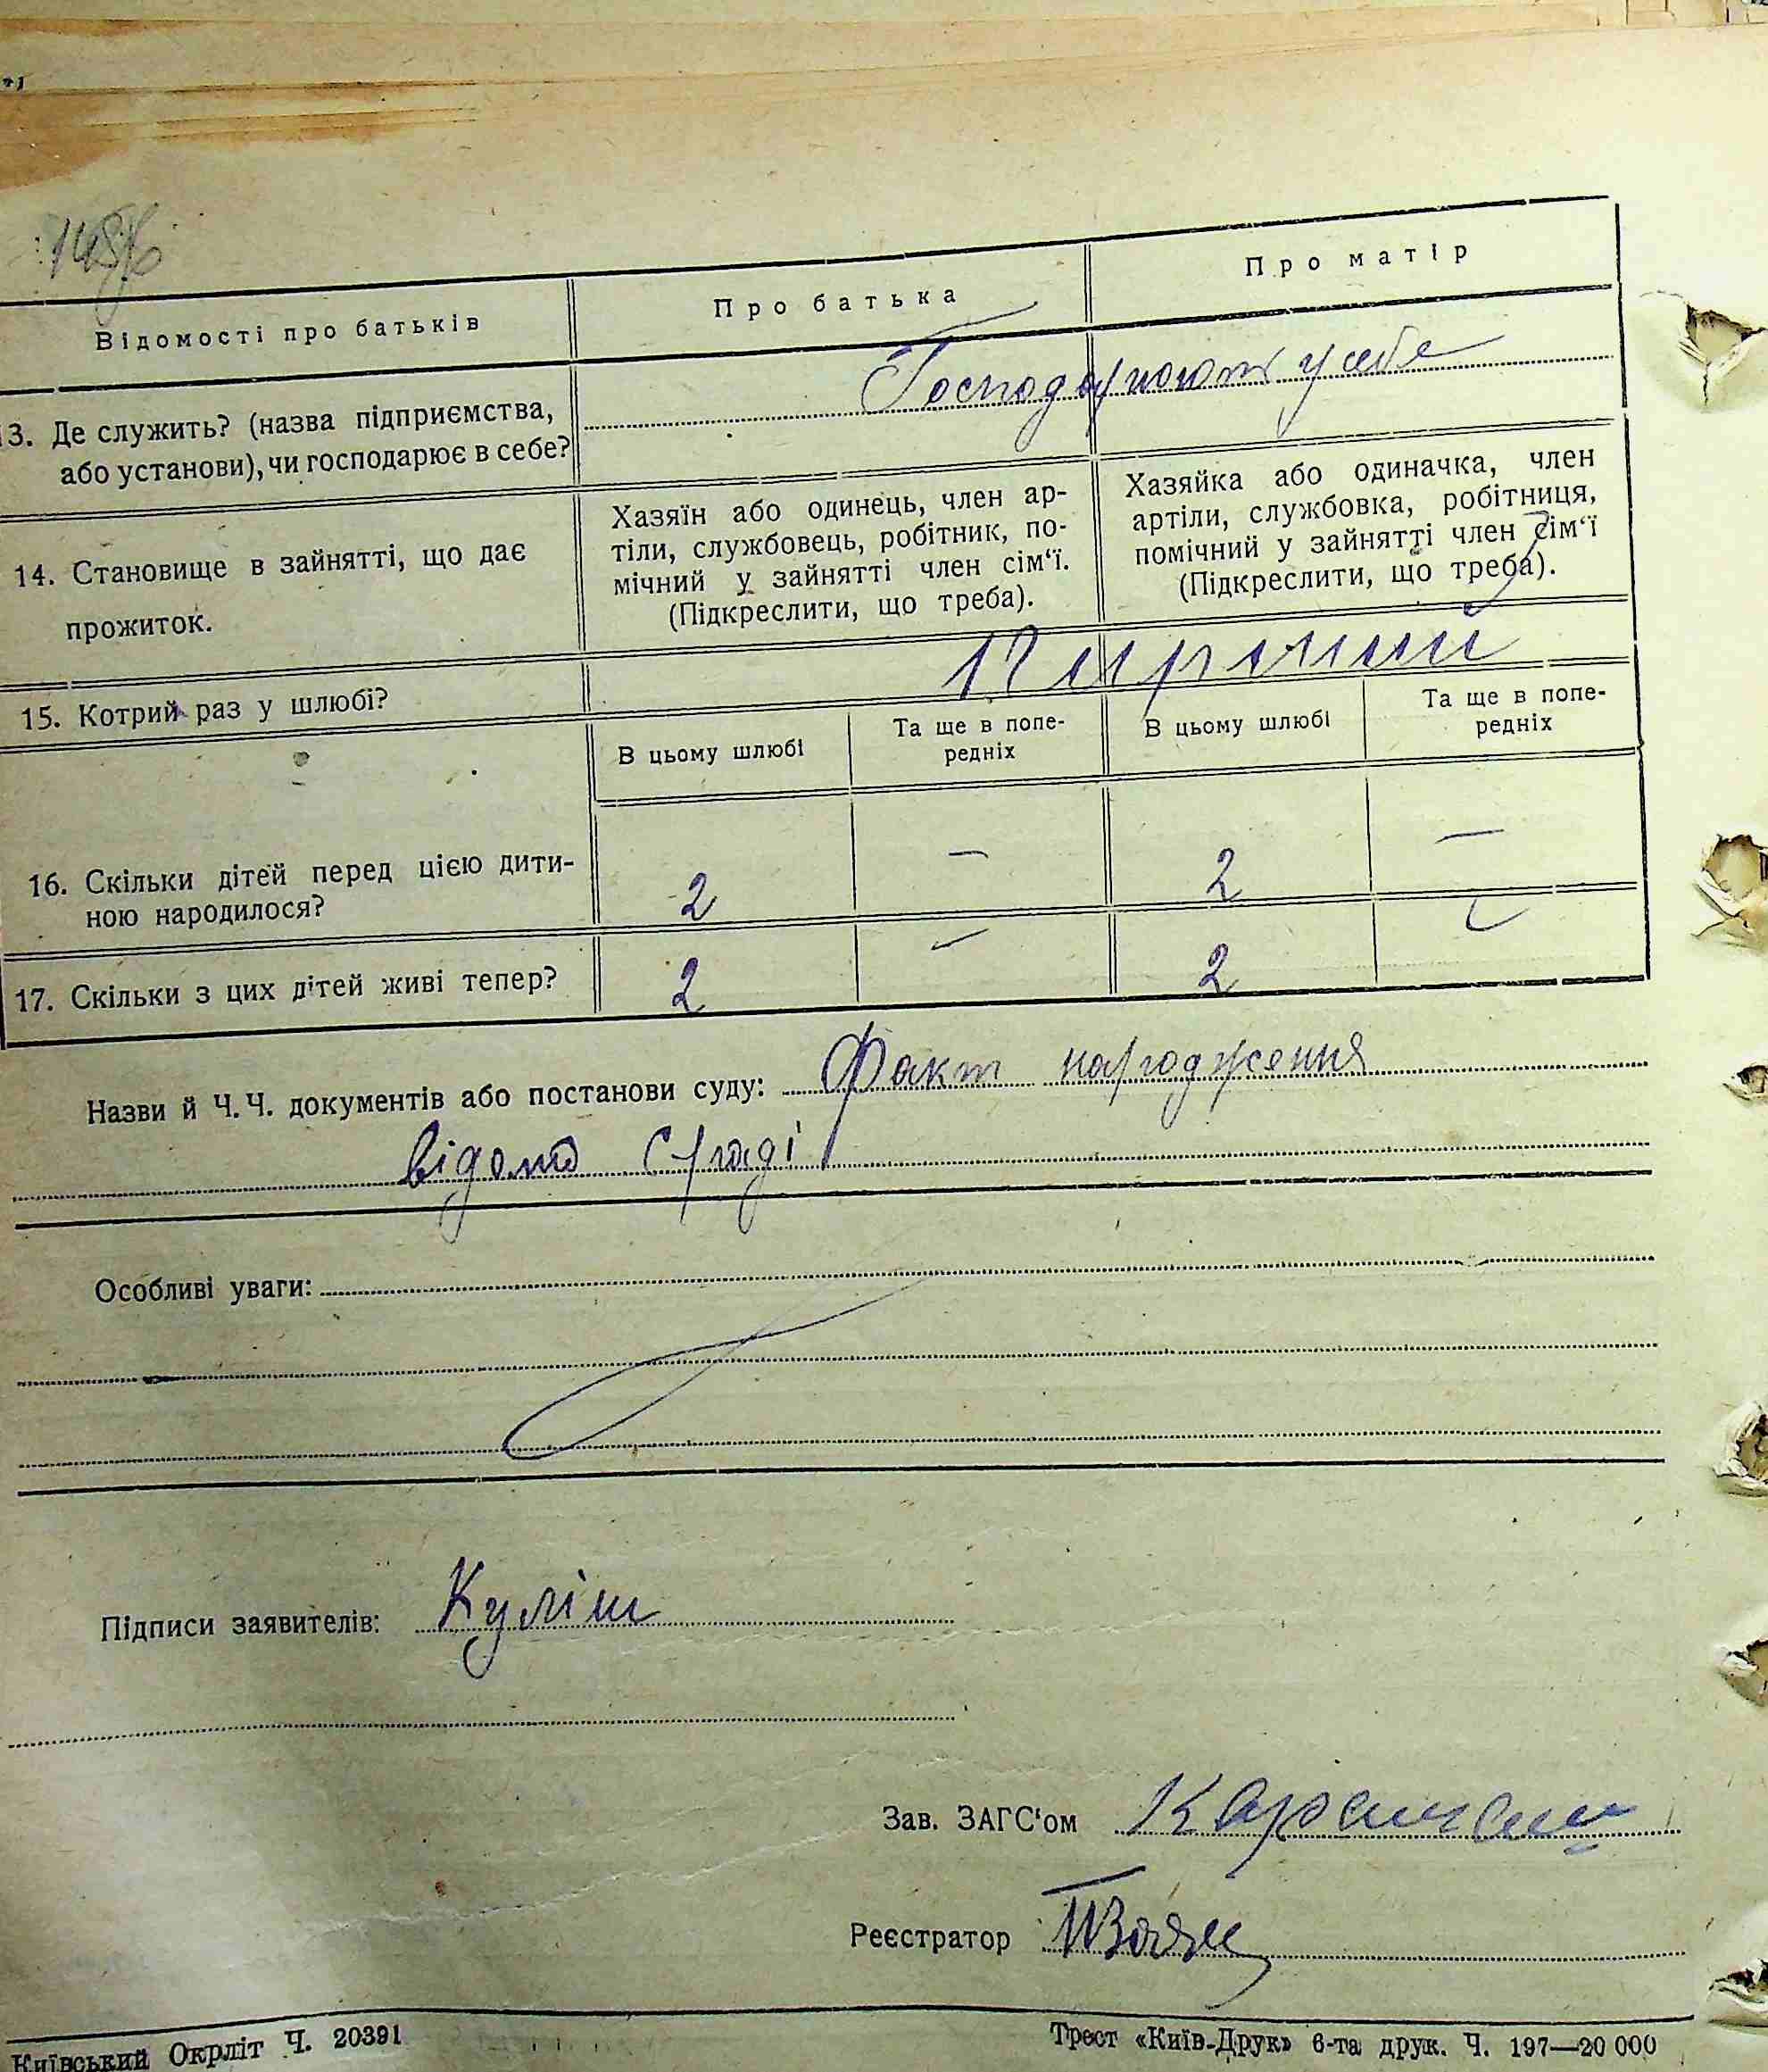 Відомості про батьків
Про батька
Про матір
13. Де служить? (назва підприємства,
або установи), чи господарює в себе?
Господарюють у себе
14. Становище в зайнятті, що дає
прожиток.
Хазяїн або одинець, член ар-
тіли, службовець, робітник, по-
мічний у зайнятті член сім‘ї.
(Підкреслити, що треба).
Хазяйка або одиначка, член
артіли, службовка, робітниця,
помічний у зайнятті член сім‘ї
(Підкреслити, що треба).
15. Котрий раз у шлюбі?
В цьому шлюбі
Та ще в попе-
редніх
В цьому шлюбі
Та ще в попе-
редніх
16. Скільки дітей перед цією дити-
ною народилося?
2 — 2 —
17. Скільки з цих дітей живі тепер?
2 2
Назви й Ч. Ч. документів або постанови суду: Факт народження
відомо с/раді
Особливі уваги:
Підписи заявителів: Куліш
Зав. ЗАГС‘ом
Реєстратор
Київський Окрліт Ч. 20391
Трест «Київ-Друк» 6-та друк. Ч. 197—20 000